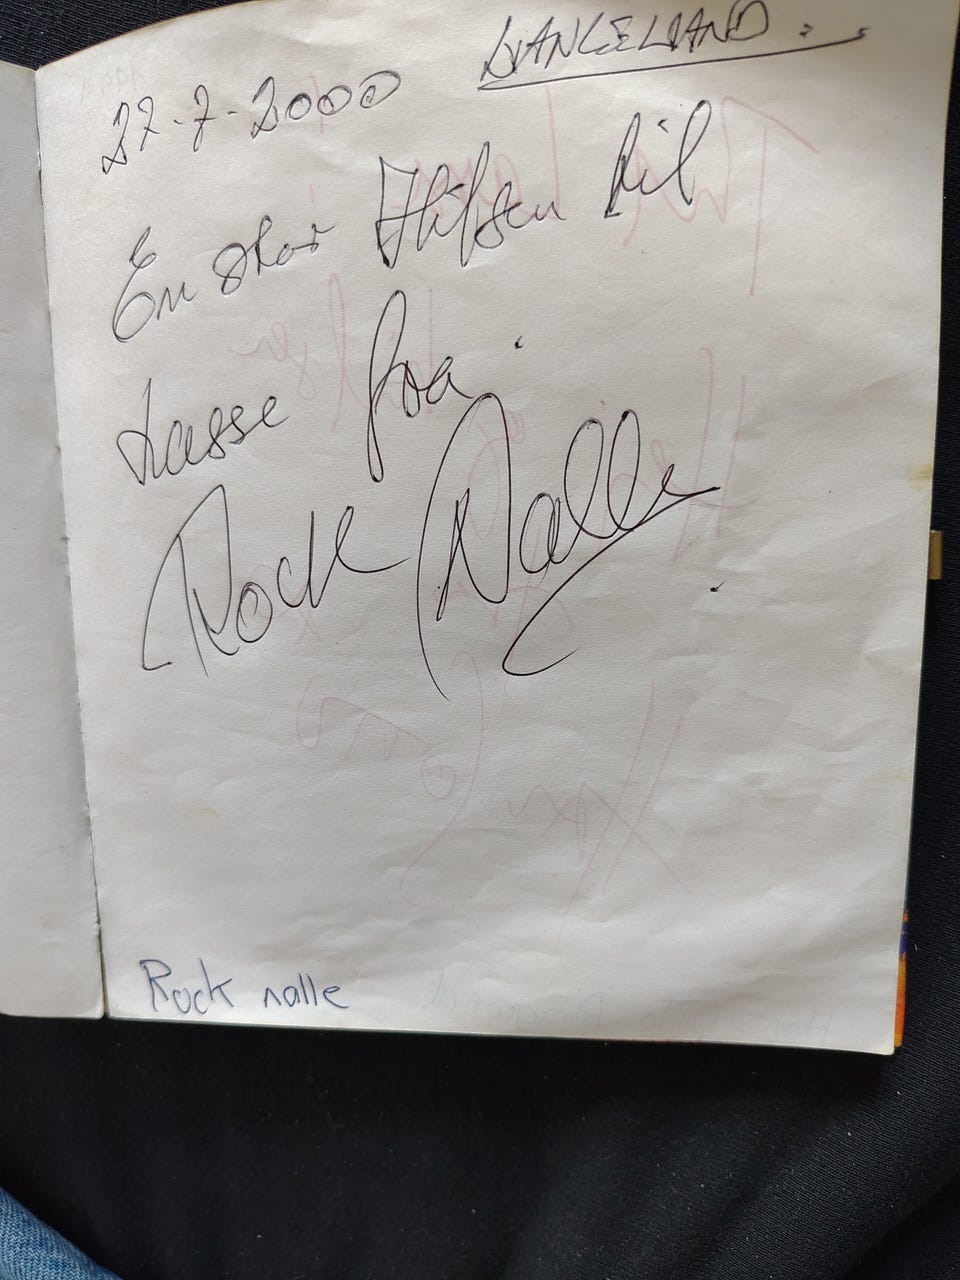 27-7-2000 LANGELAND.
En stor Hilsen til
Lasse fra.
Rock Nalle.
Rock nalle